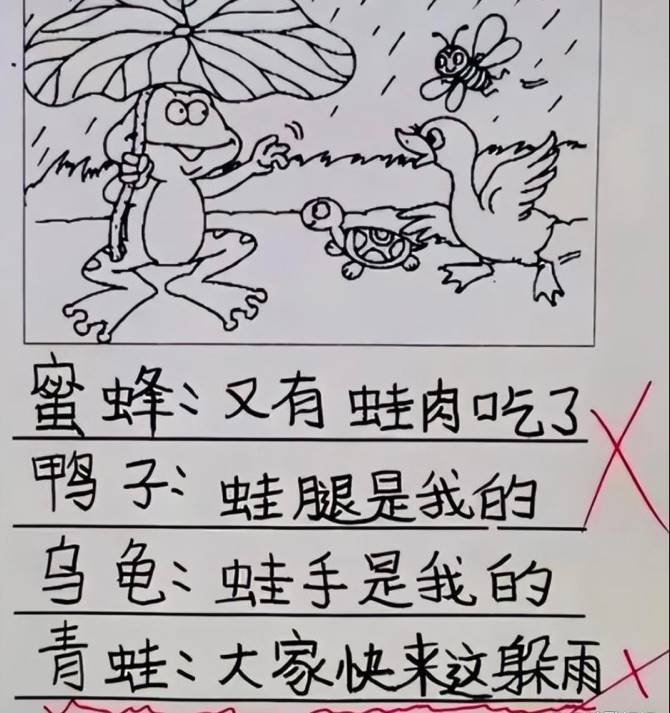 蜜蜂：又有蛙肉吃了
鸭子：蛙腿是我的
乌龟：蛙手是我的
青蛙：大家快来这躲雨